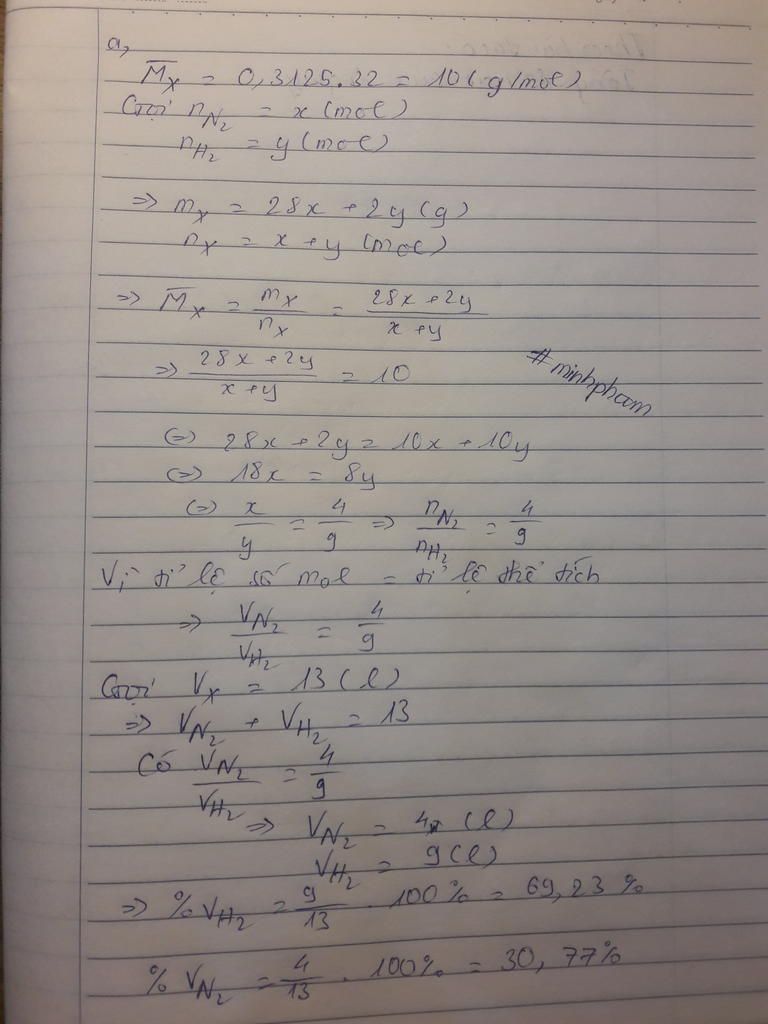 a,
M̅x = 0,3125.32 = 10 (g/mol)
Gọi nN2 = x (mol)
nH2 = y (mol)
=> mx = 28x + 2y (g)
nx = x + y (mol)
=> M̅x = mx/nx = (28x + 2y)/(x + y)
=> (28x + 2y)/(x + y) = 10
#minhpham
(=) 28x + 2y = 10x + 10y
(=>) 18x = 8y
(=>) x/y = 4/9 => nN2/nH2 = 4/9
Vì tỉ lệ số mol = tỉ lệ thể tích
=> VN2/VH2 = 4/9
Gọi Vx = 13 (l)
=> VN2 + VH2 = 13
Có VN2/VH2 = 4/9
=> VN2 = 4 (l)
VH2 = 9 (l)
=> % VH2 = 9/13 . 100% = 69,23 %
% VN2 = 4/13 . 100% = 30,77%